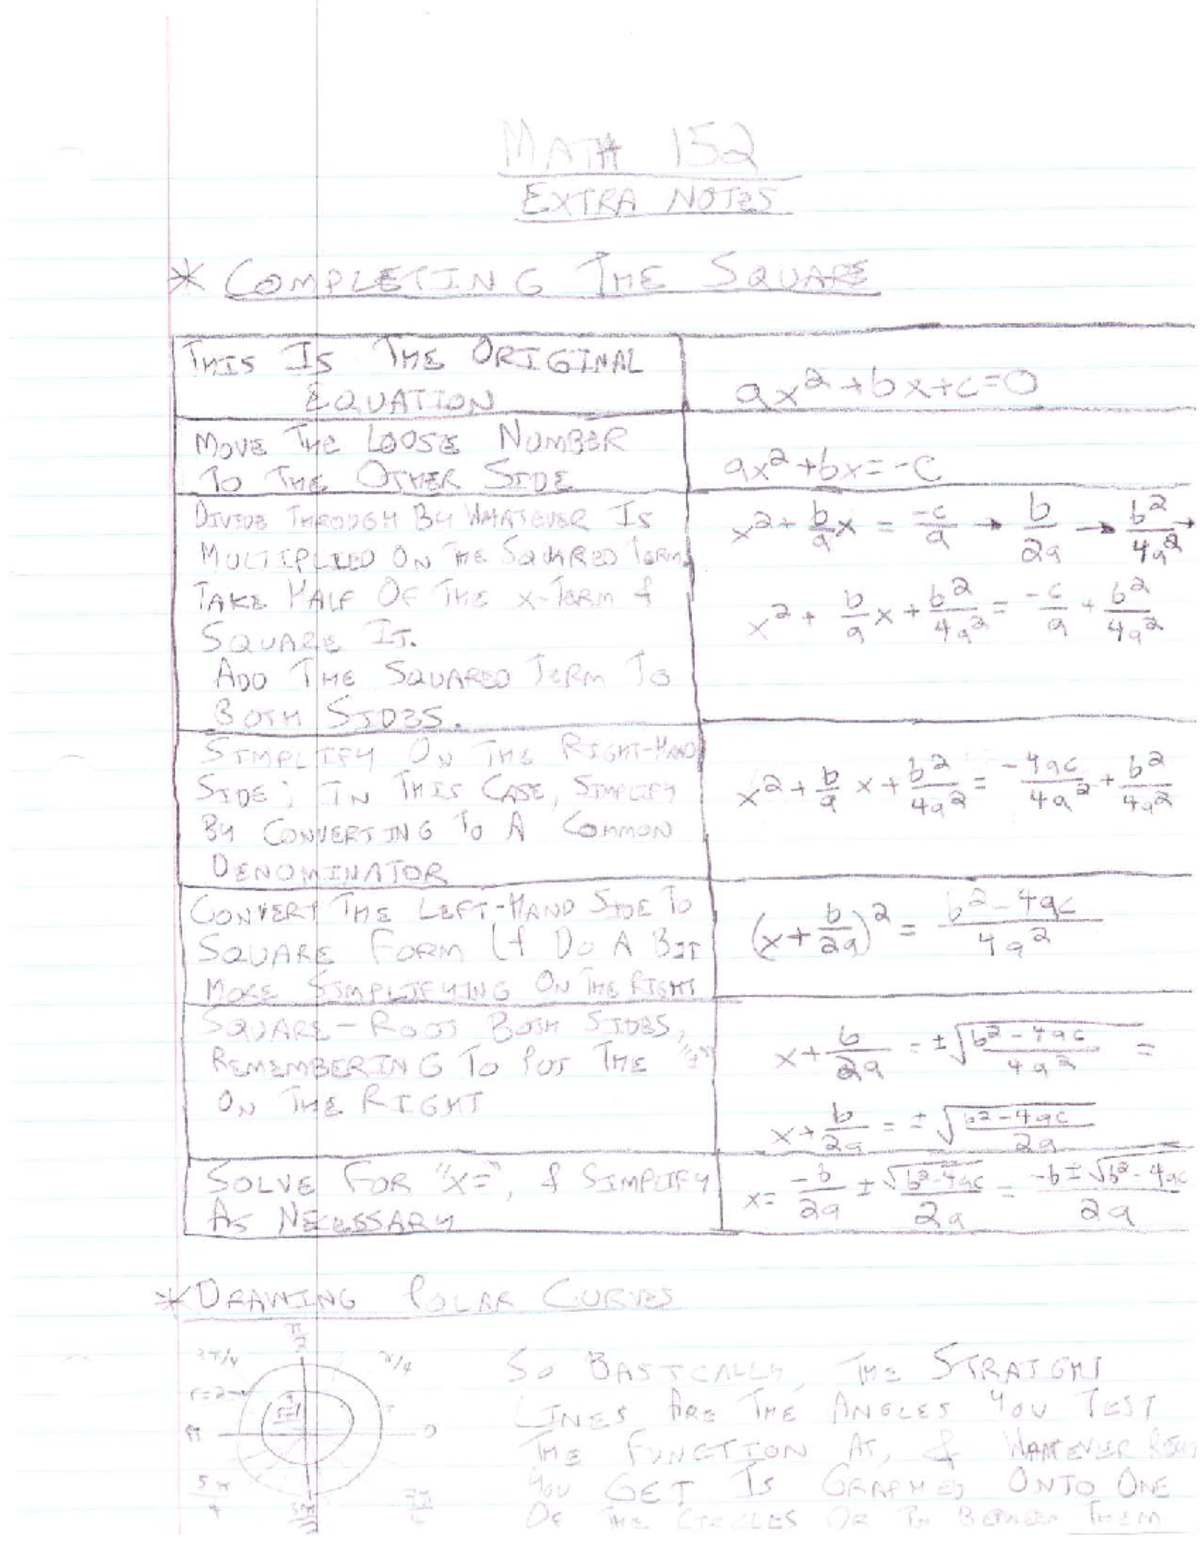 MATH 152
EXTRA NOTES
* COMPLETING THE SQUARE
THIS IS THE ORIGINAL
EQUATION
ax²+bx+c=0
MOVE THE LOOSE NUMBER
TO THE OTHER SIDE
ax²+bx=-c
DIVIDE THROUGH BY WHATEVER IS
MULTIPLIED ON THE SQUARED TERM
TAKE HALF OF THE x-TERM &
SQUARE IT.
ADD THE SQUARED TERM TO
BOTH SIDES.
x²+ b/a x = -c/a → b/2a → b²/4a² →
x²+ b/a x + b²/4a² = -c/a + b²/4a²
SIMPLIFY ON THE RIGHT-HAND
SIDE; IN THIS CASE, SIMPLIFY
BY CONVERTING TO A COMMON
DENOMINATOR
x²+ b/a x + b²/4a² = -4ac/4a² + b²/4a²
CONVERT THE LEFT-HAND SIDE TO
SQUARE FORM (& DO A BIT
MORE SIMPLIFYING ON THE RIGHT
(x+ b/2a)² = b²-4ac/4a²
SQUARE-ROOT BOTH SIDES,
REMEMBERING TO PUT THE "±"
ON THE RIGHT
x+ b/2a = ±√(b²-4ac/4a²) =
x+ b/2a = ±√(b²-4ac)/2a
SOLVE FOR "x=", & SIMPLIFY
AS NECESSARY
x= -b/2a ± √(b²-4ac)/2a = -b±√(b²-4ac)/2a
* DRAWING POLAR CURVES
π/2
3π/4
π/4
r=2
r=1
π
0
5π/4
3π/2
SO BASICALLY, THE STRAIGHT
LINES ARE THE ANGLES YOU TEST
THE FUNCTION AT, & WHATEVER
YOU GET IS GRAPHED ONTO ONE
OF THE CIRCLES OR IN BETWEEN THEM